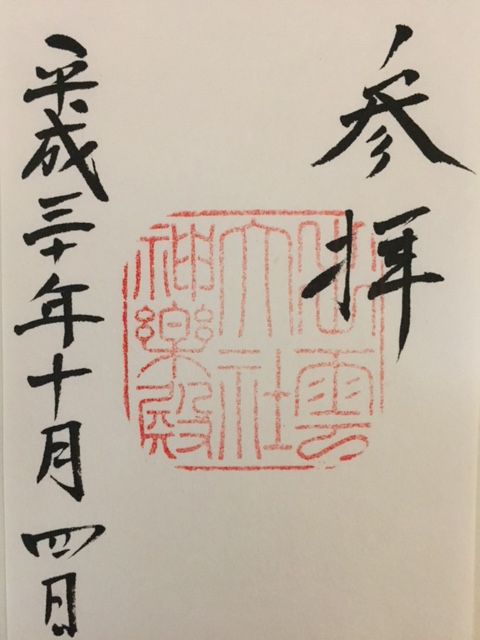 参拝
出雲
大社
神楽殿
平成三十年十月四日